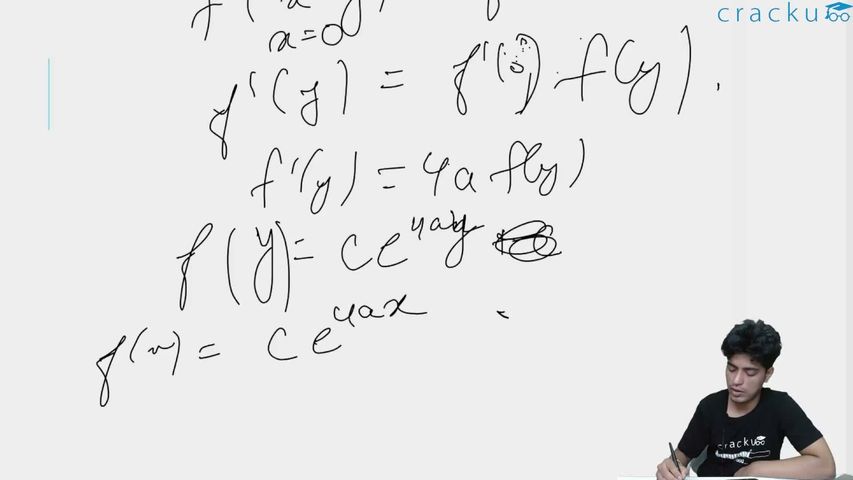 cracku
x=0
f'(y) = f'(0) f(y).
f'(y) = 4a f(y)
f(y) = ce^{4ay}
f(x) = ce^{4ax} =
cracku